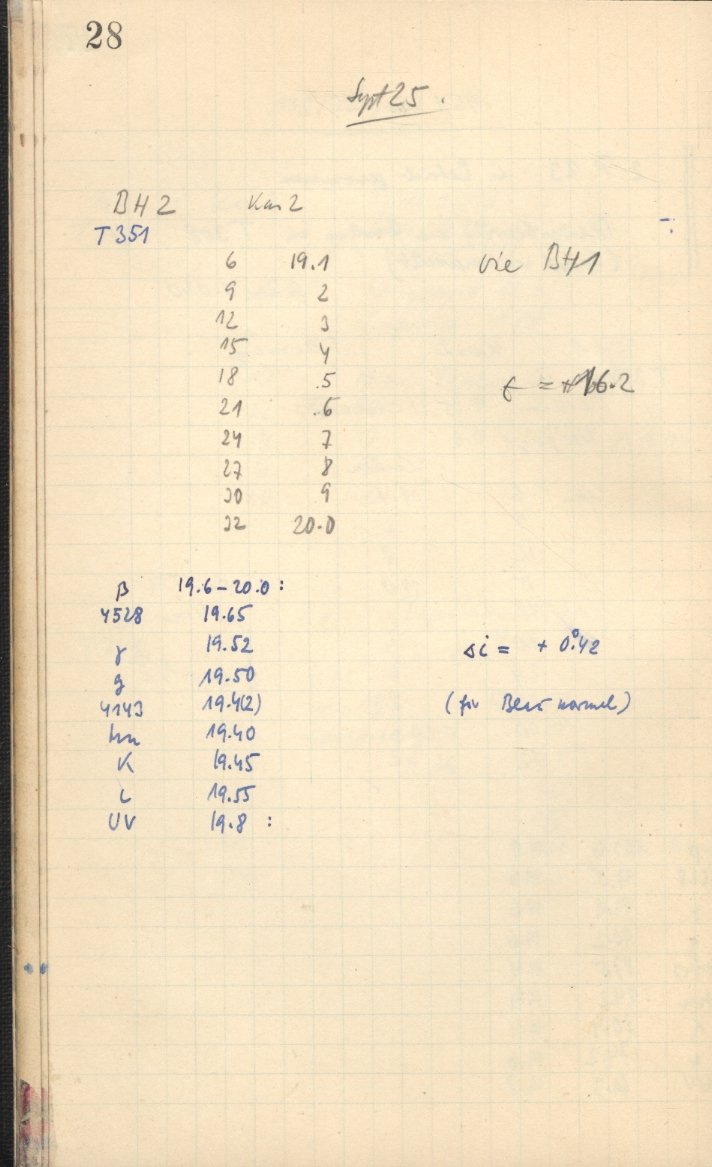 28
Sept 25.
BH 2 Kas 2
T 351
6 19.1 wie BH1
9 2
12 3
15 4
18 .5 t = +16.2
21 .6
24 7
27 8
30 9
32 20.0
β 19.6-20.0:
4528 19.65
γ 19.52 Δi = + 0°.42
g 19.50
4143 19.4(2) (für normal)
hn 19.40
K 19.45
L 19.55
UV 19.8 :